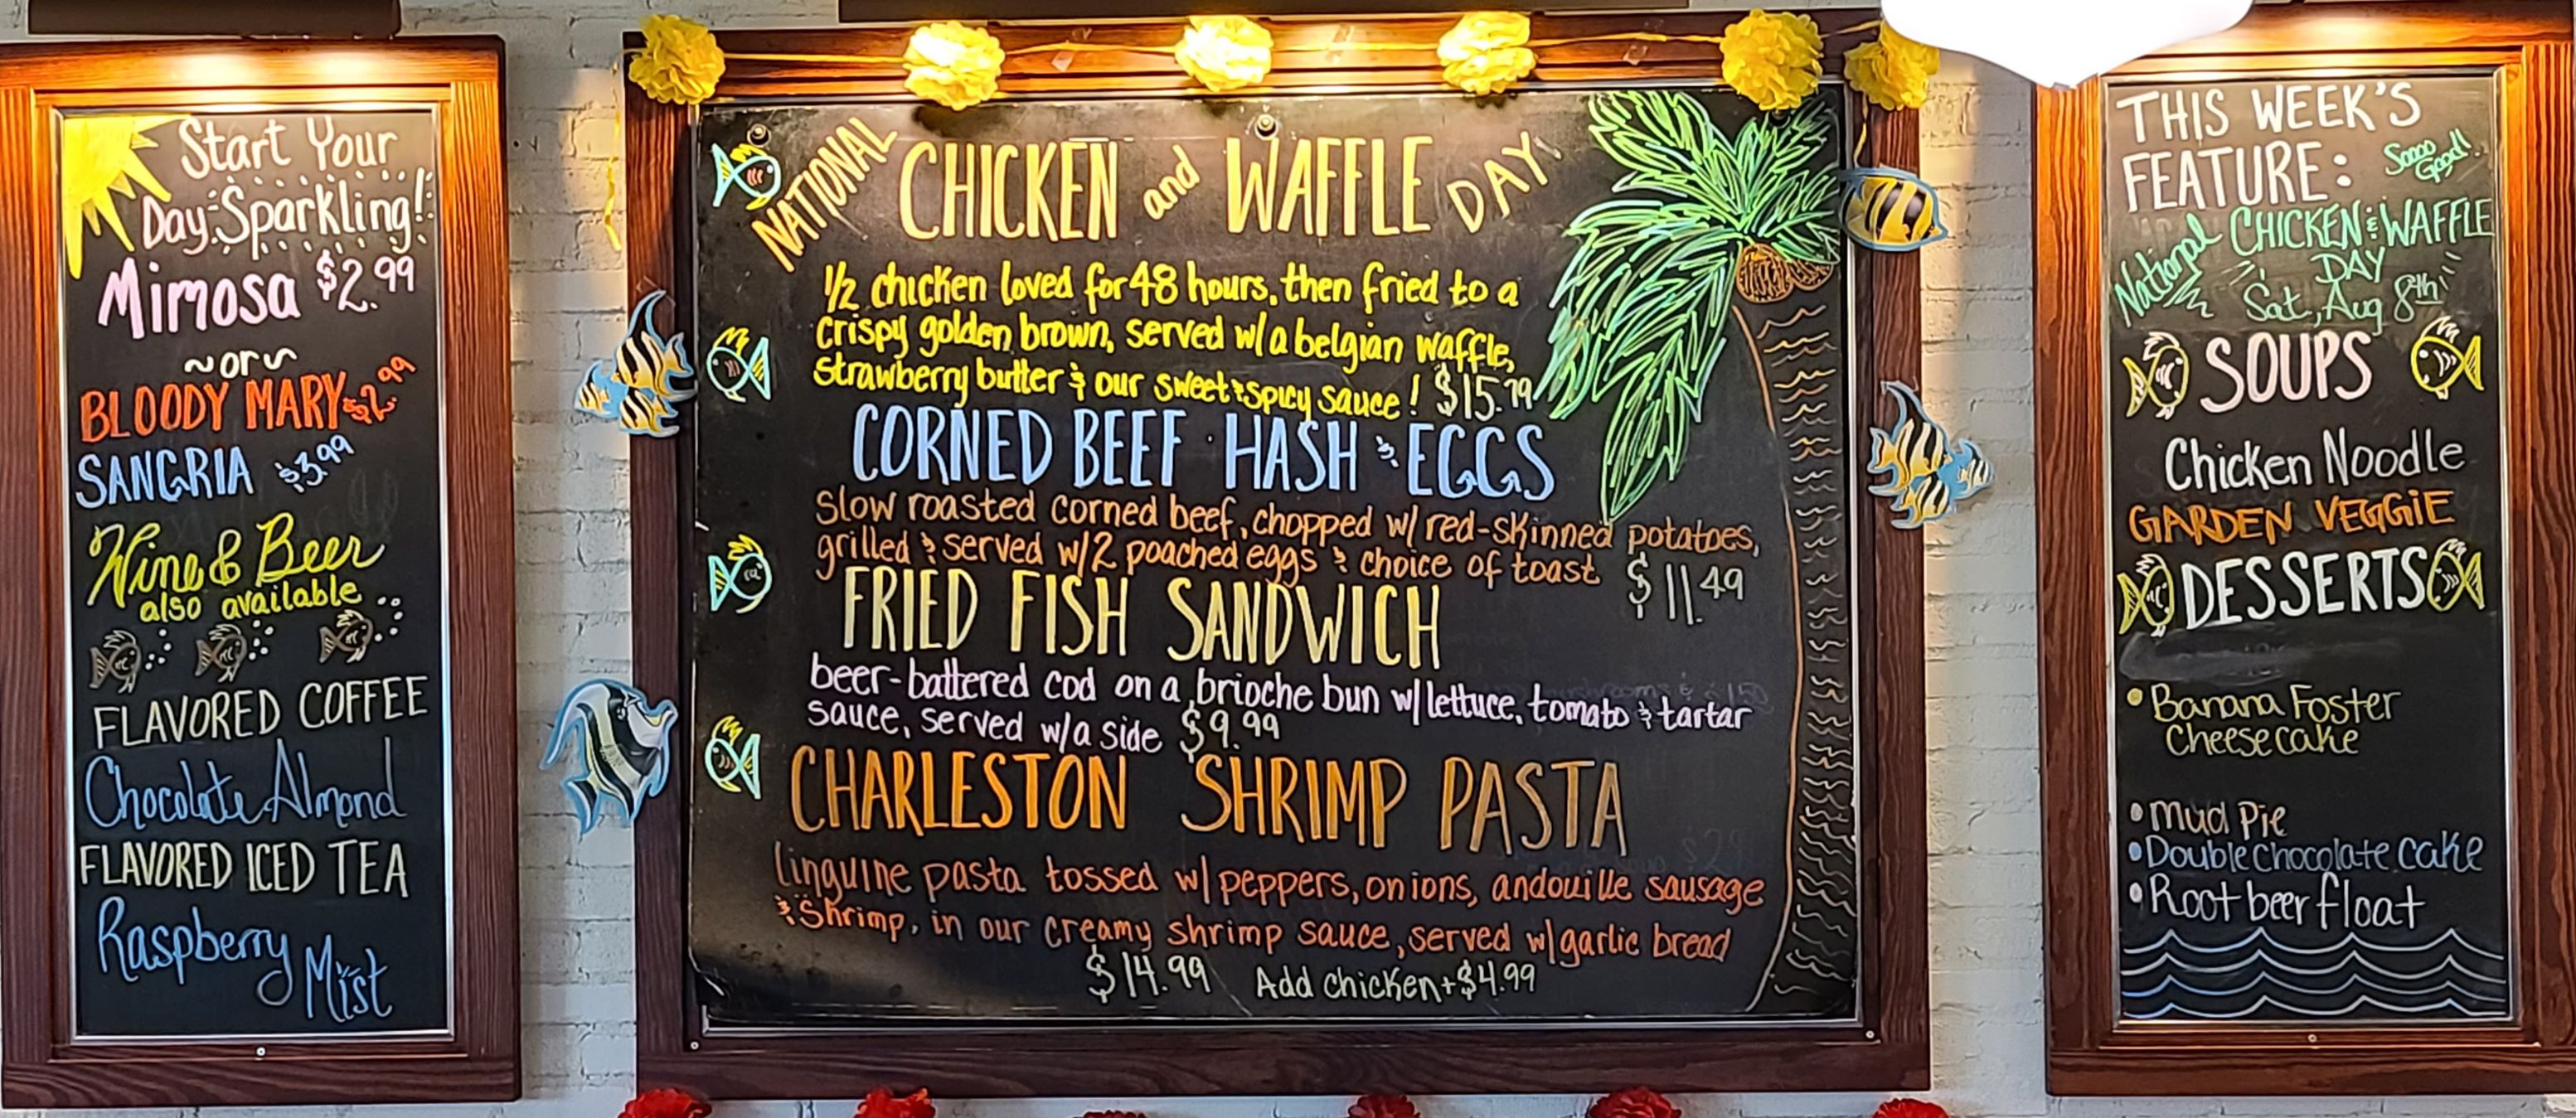 Start Your
Day Sparkling!
Mimosa $2.99
~or~
BLOODY MARY $2.99
SANGRIA $3.99
Wine & Beer
also available
FLAVORED COFFEE
Chocolate Almond
FLAVORED ICED TEA
Raspberry
Mist
NATIONAL CHICKEN and WAFFLE DAY!
1/2 chicken loved for 48 hours, then fried to a
crispy golden brown, served w/a belgian waffle,
strawberry butter & our sweet & spicy sauce! $15.79
CORNED BEEF HASH & EGGS
Slow roasted corned beef, chopped w/ red-skinned potatoes,
grilled & served w/2 poached eggs & choice of toast $11.49
FRIED FISH SANDWICH
beer-battered cod on a brioche bun w/ lettuce, tomato & tartar
sauce, served w/a side $9.99
CHARLESTON SHRIMP PASTA
linguine pasta tossed w/ peppers, onions, andouille sausage
& shrimp, in our creamy shrimp sauce, served w/ garlic bread
$14.99 Add chicken +$4.99
THIS WEEK'S
FEATURE: Soooo Good!
National CHICKEN & WAFFLE
DAY
Sat, Aug 8th
SOUPS
Chicken Noodle
GARDEN VEGGIE
DESSERTS
• Banana Foster
Cheesecake
• Mud Pie
• Double Chocolate cake
• Root beer float